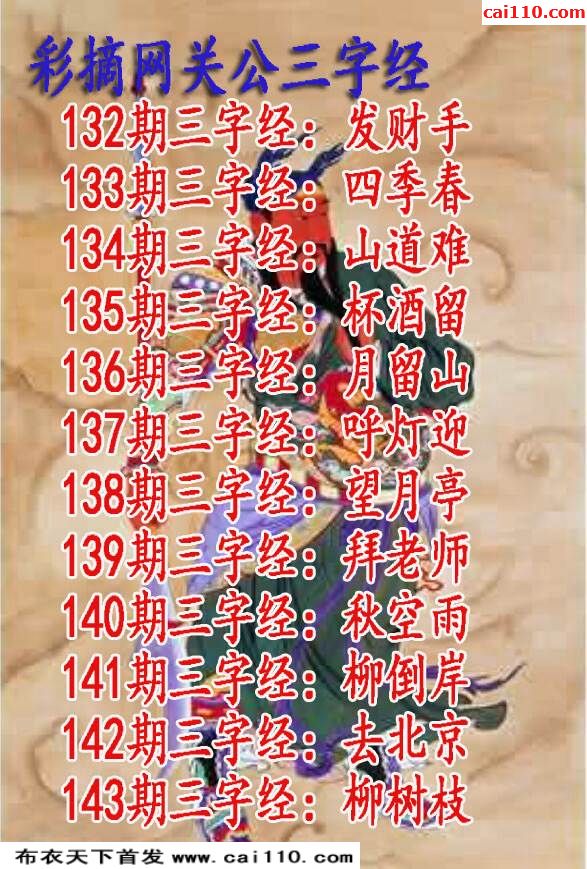 cai110.com
彩摘网关公三字经
132期三字经：发财手
133期三字经：四季春
134期三字经：山道难
135期三字经：杯酒留
136期三字经：月留山
137期三字经：呼灯迎
138期三字经：望月亭
139期三字经：拜老师
140期三字经：秋空雨
141期三字经：柳倒岸
142期三字经：去北京
143期三字经：柳树枝
布衣天下首发 www.cai110.com